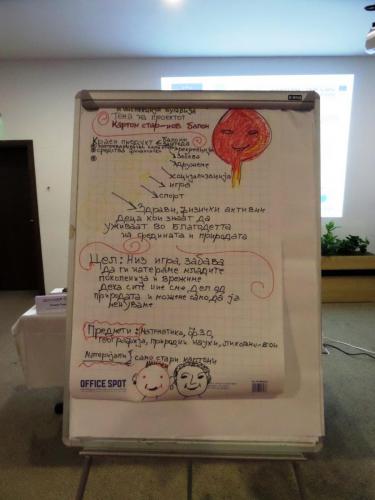 Тема на проектот
Картон стар-нов Балон
Краен продукт Балони
Забава
Дружење
социјализација
игра
спорт
Здрави, физички активни
деца кои знаат да
уживаат во благодетта
на средината и природата
Цел: Низ игра, забава
да ги натераме младите
поколенија и
дека сите ние сме дел од
природата и можеме само да ја
менуваме
Предмети: Математика, ФЗО,
географија, природни науки, ликовни-бои
Материјали само стари картони
OFFICE SPOT